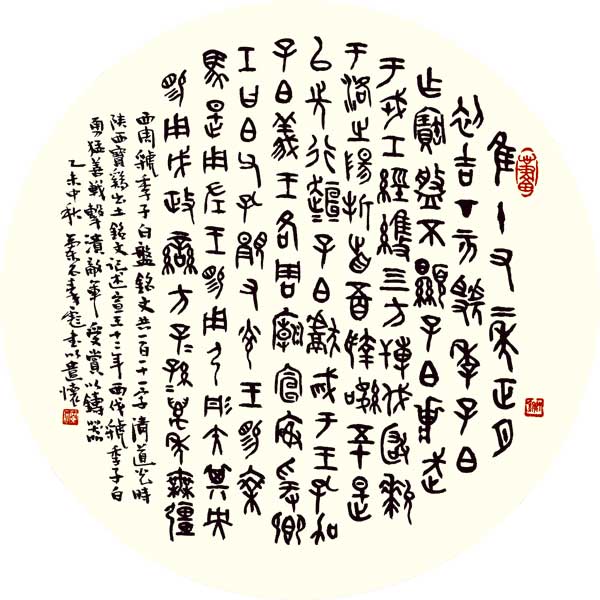 隹十又二年正月
初吉丁亥虢季子白
乍寶盤不顯子白武
于戎工經維四方搏伐玁狁
于洛之陽折首五百執訊五十是
以先行趄子白獻馘于王孔加
子白義王各周廟宣榭爰卿
王曰白父孔顯又光王易乘
馬是用左王易用弓彤矢其央
易用戉政蠻方子孫萬年無疆
西周虢季子白盤銘文共一百一十一字清道光時
陝西寶鷄出土銘文記述宣王十二年西伐虢季子白
勇猛善戰擊潰敵軍受賞以鑄器
乙未中秋書以遣懷